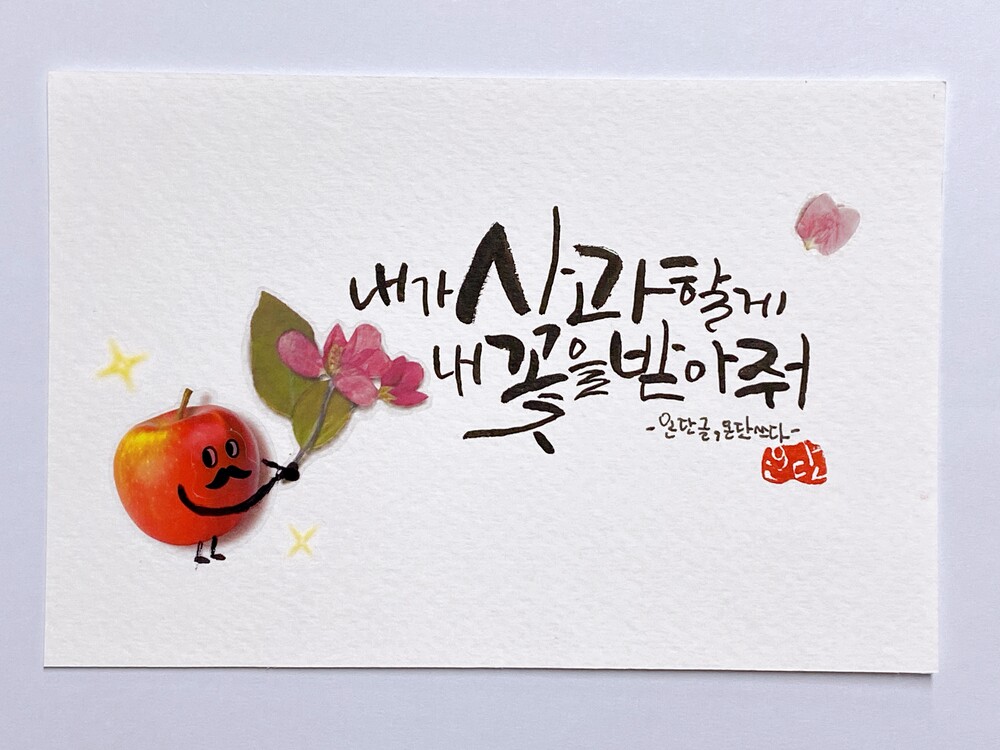 내가 사과할게
내 꽃을 받아줘
-온단글, 온단쓰다-
온단